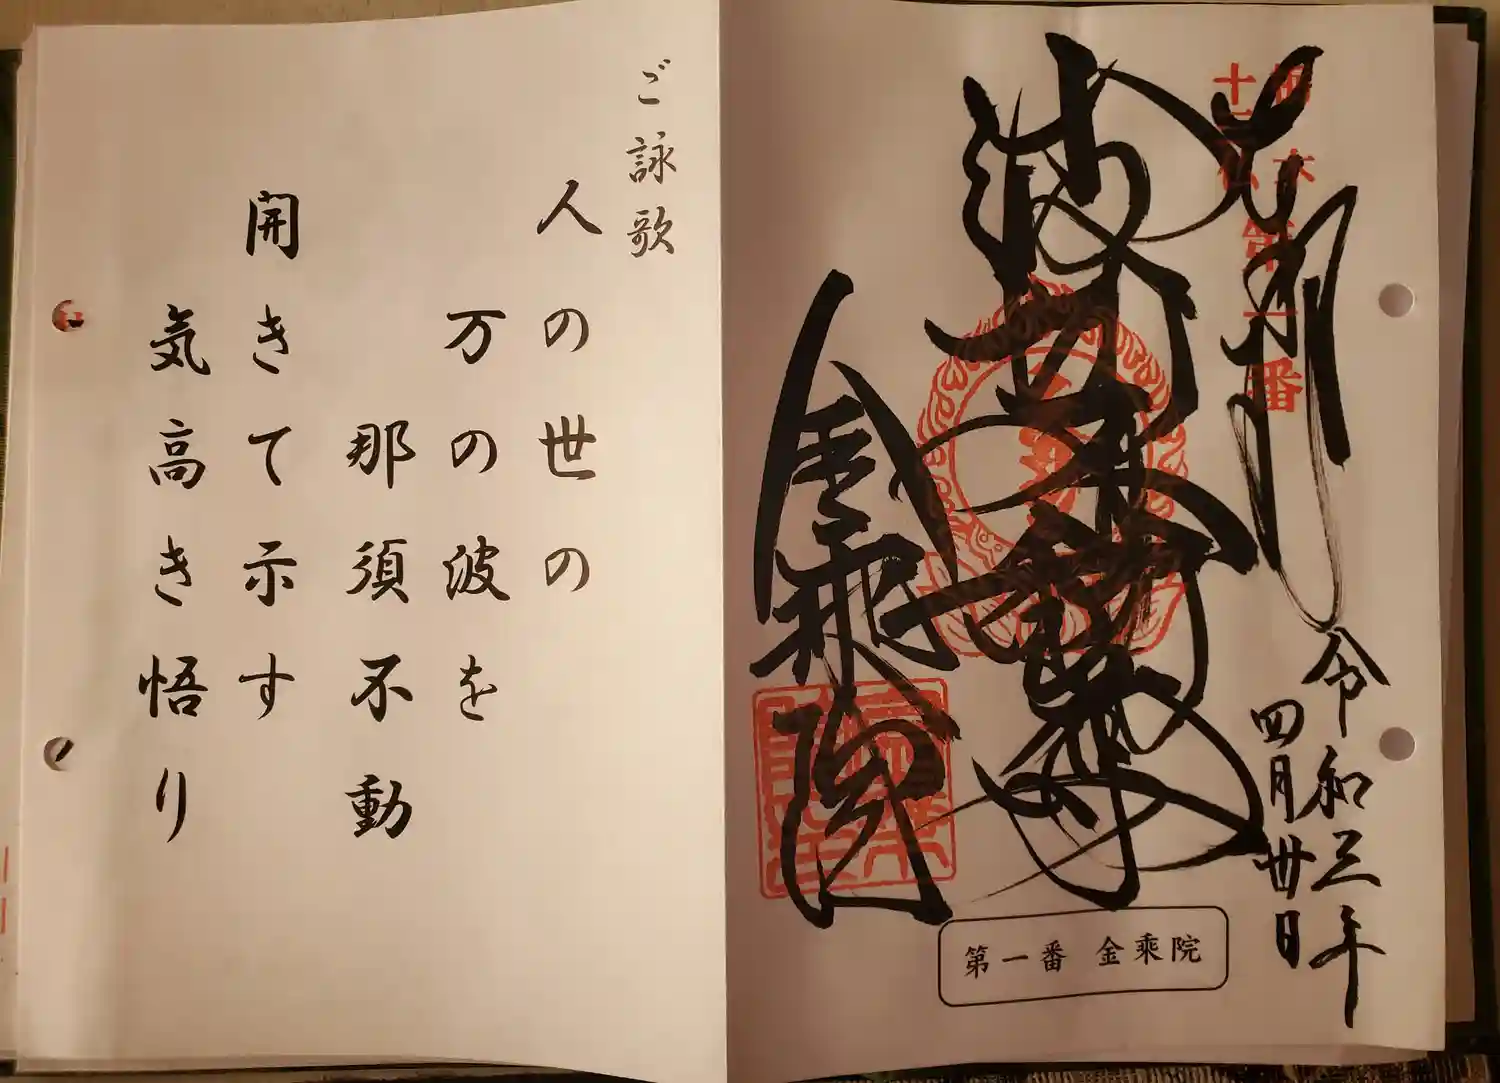 奉拝
第一番
令和三年
四月廿日
波切不動尊
金乗院
第一番 金乗院
ご詠歌
人の世の
万の波を
那須不動
開きて示す
気高き悟り